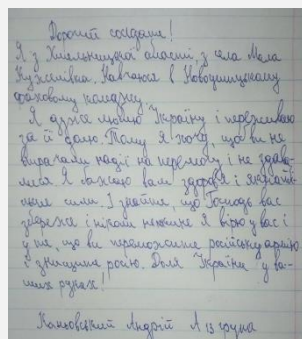 Дорогий солдате!
Я з Хмельницької області, з села Мала
Кужелівка. Навчаюся в Новоушицькому
фаховому коледжу.
Я дуже люблю Україну і переживаю
за її долю. Тому я хочу, щоб ви не
втрачали надії на перемогу і не здава-
лися. Я бажаю вам здоров'я і
сили. І знайте, що Господь вас
збереже і ніколи не Я вірю у вас і
у те, що ви переможите російську армію
і знищите росію. Доля України у ва-
ших руках!
Каньовський Андрій А 13 група